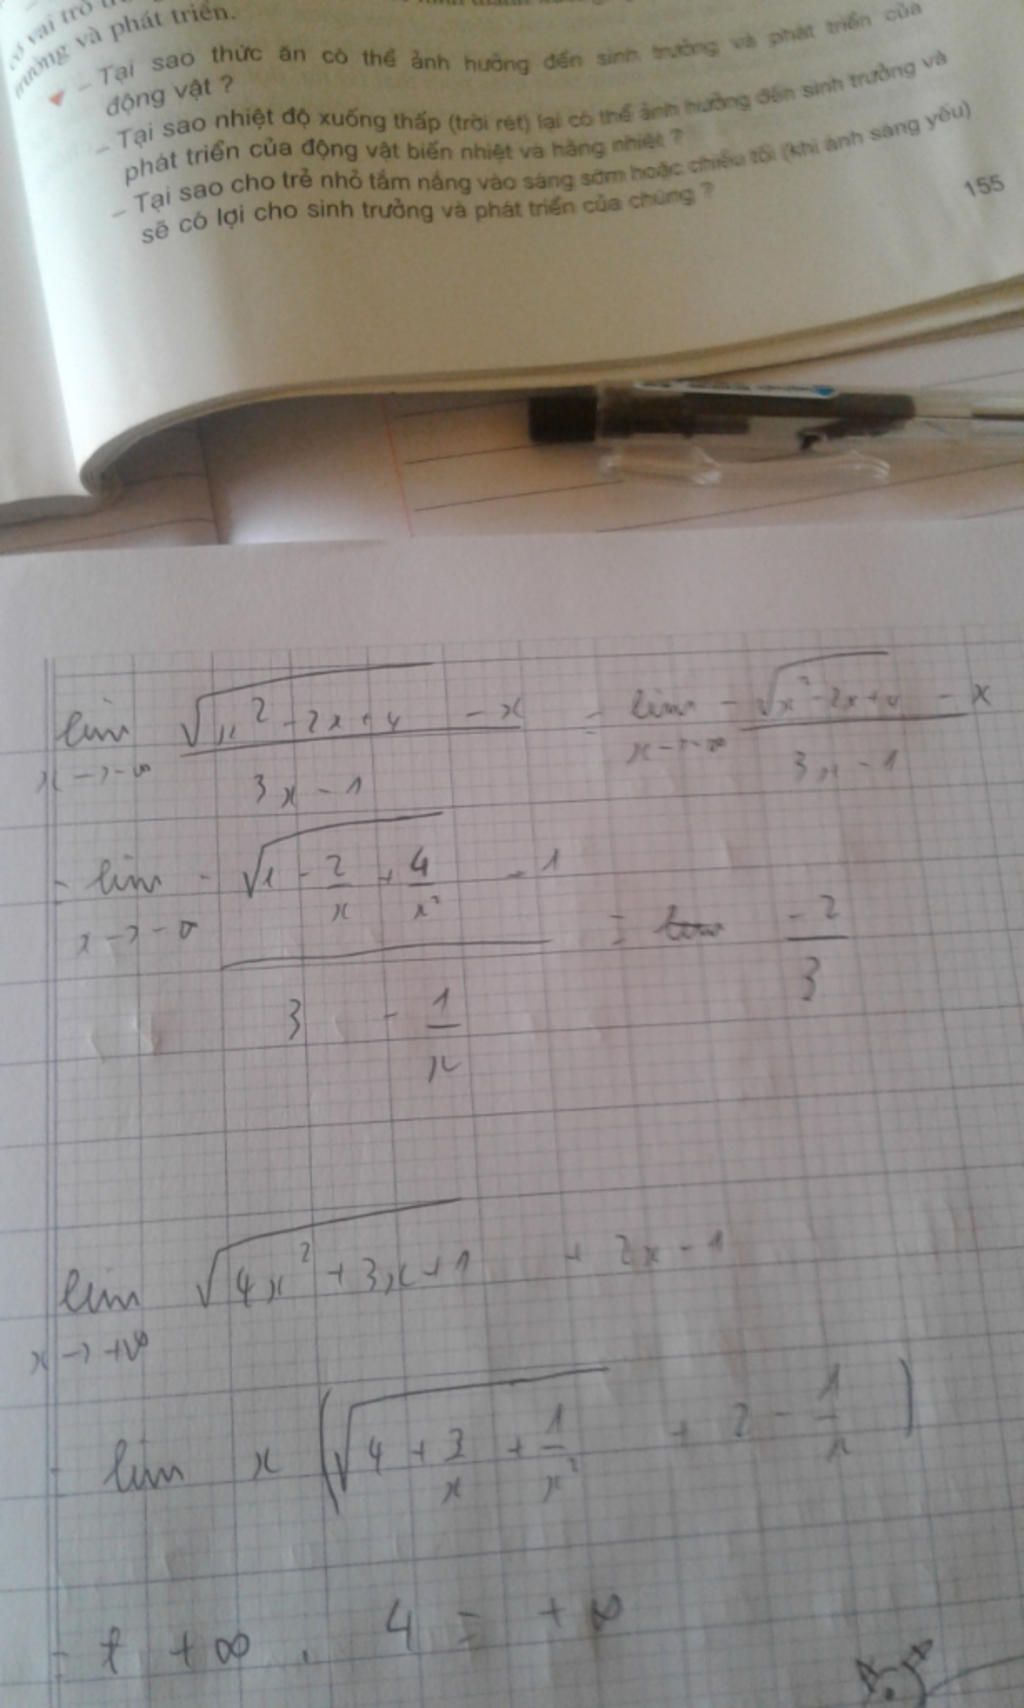 có vai trò
trưởng và phát triển.
– Tại sao thức ăn có thể ảnh hưởng đến sinh trưởng và phát triển của
động vật ?
– Tại sao nhiệt độ xuống thấp (trời rét) lại có thể ảnh hưởng đến sinh trưởng và
phát triển của động vật biến nhiệt và hằng nhiệt ?
– Tại sao cho trẻ nhỏ tắm nắng vào sáng sớm hoặc chiều tối (khi ánh sáng yếu)
sẽ có lợi cho sinh trưởng và phát triển của chúng ?
155
lim √(x² - 2x + 4) - x = lim - √(x² - 2x + 4) - x
x -> -∞ x -> -∞
3x - 1 3x - 1
= lim - √(1 - 2/x + 4/x²) - 1 = -2/3
x -> -∞
3 - 1/x
lim √(4x² + 3x + 1) + 2x - 1
x -> +∞
= lim x (√(4 + 3/x + 1/x²) + 2 - 1/x)
= +∞ . 4 = +∞